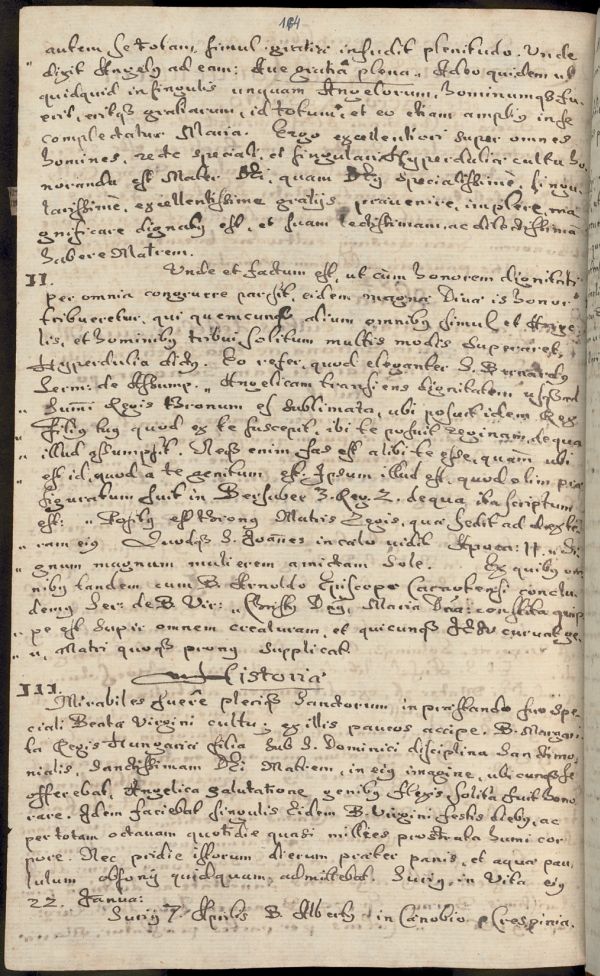 184
autem se totam simul gratiæ infudit plenitudo. Unde
" digit Angelus ad eam: Aue gratia plena. Adeo quidem ut
quidquid in singulis unquam Angelorum, hominumque fu
erit, eritque gratiarum, id totum, et eo etiam amplius in se
complectatur Maria. Ergo excellentiori super omnes
homines, recte speciali, et singulari Hyperduliæ cultu ho
noranda est Mater Dei, quam Deus specialissime, singu
larissime, excellentissime gratijs præuenire, implere, ma
gnificare dignatus est, et suam lectissimam, ac dilectissimam
habere Matrem.
II. Unde et factum est, ut cum honorem dignitati
per omnia congruere par sit, eidem magnæ Diuæ is honor
tribueretur, qui quemcunque alium omnibus simul et Ange
lis, et hominibus tribui solitum multis modis superaret,
Hyperdulia dictus. Eo refer, quod eleganter S. Bernardus
Serm: de Assump. " Angelicam transiens dignitatem usque ad
" Sumi Regis thronum es sublimata, ubi posuit idem Rex
" Filius tuus quod ex te suscepit, ibi te posuit Reginam, de qua
" illud assumpsit. Neque enim fas est alibi te esse, quam ubi
" est id, quod a te genitum est. Ipsum illud est, quod olim præ
figuratum fuit in Bersabee 3. Reg. 2. de qua ita scriptum
est: " Positus est thronus Matris Regis, quæ sedit ad dexte
" ram eius. Quodque S. Joanes in cælo uidit Apoca: 11. " Si
" gnum magnum mulierem amictam Sole. Ex quibus om
nibus tandem cum B. Arnoldo Episcopo Carnotensi conclu
demus Ser: de B. Vir: " Christus Dnus, Maria Dna: constituta quip
" pe est super omnem creaturam, et quicunque Jesu curuat ge
" nu, Matri quoque pronus supplicat.
Historia
III. Mirabiles fuere plerique Sanctorum in præstando suo spe
ciali Beatæ Virgini cultu; ex illis paucos accipe. B. Margari
ta Regis Hungariæ filia sub S. Dominici disciplina Sanctimo
nialis, Sanctissimam Dei Matrem, in eius imagine, ubicunque se
offerebat, Angelica salutatione genibus flexis solita fuit hono
rare. Idem faciebat singulis eidem B. Virgini festis diebus, ac
per totam octauam quotidie quasi millies prostrata humi cor
pore. Nec pridie istorum dierum præter panis, et aquæ pau
lulum obsonij quidquam admittebat. Surius, in Vita eius
22. Janua:
Surius 7. Aprilis B. Albertus in Cœnobio Crespinia.